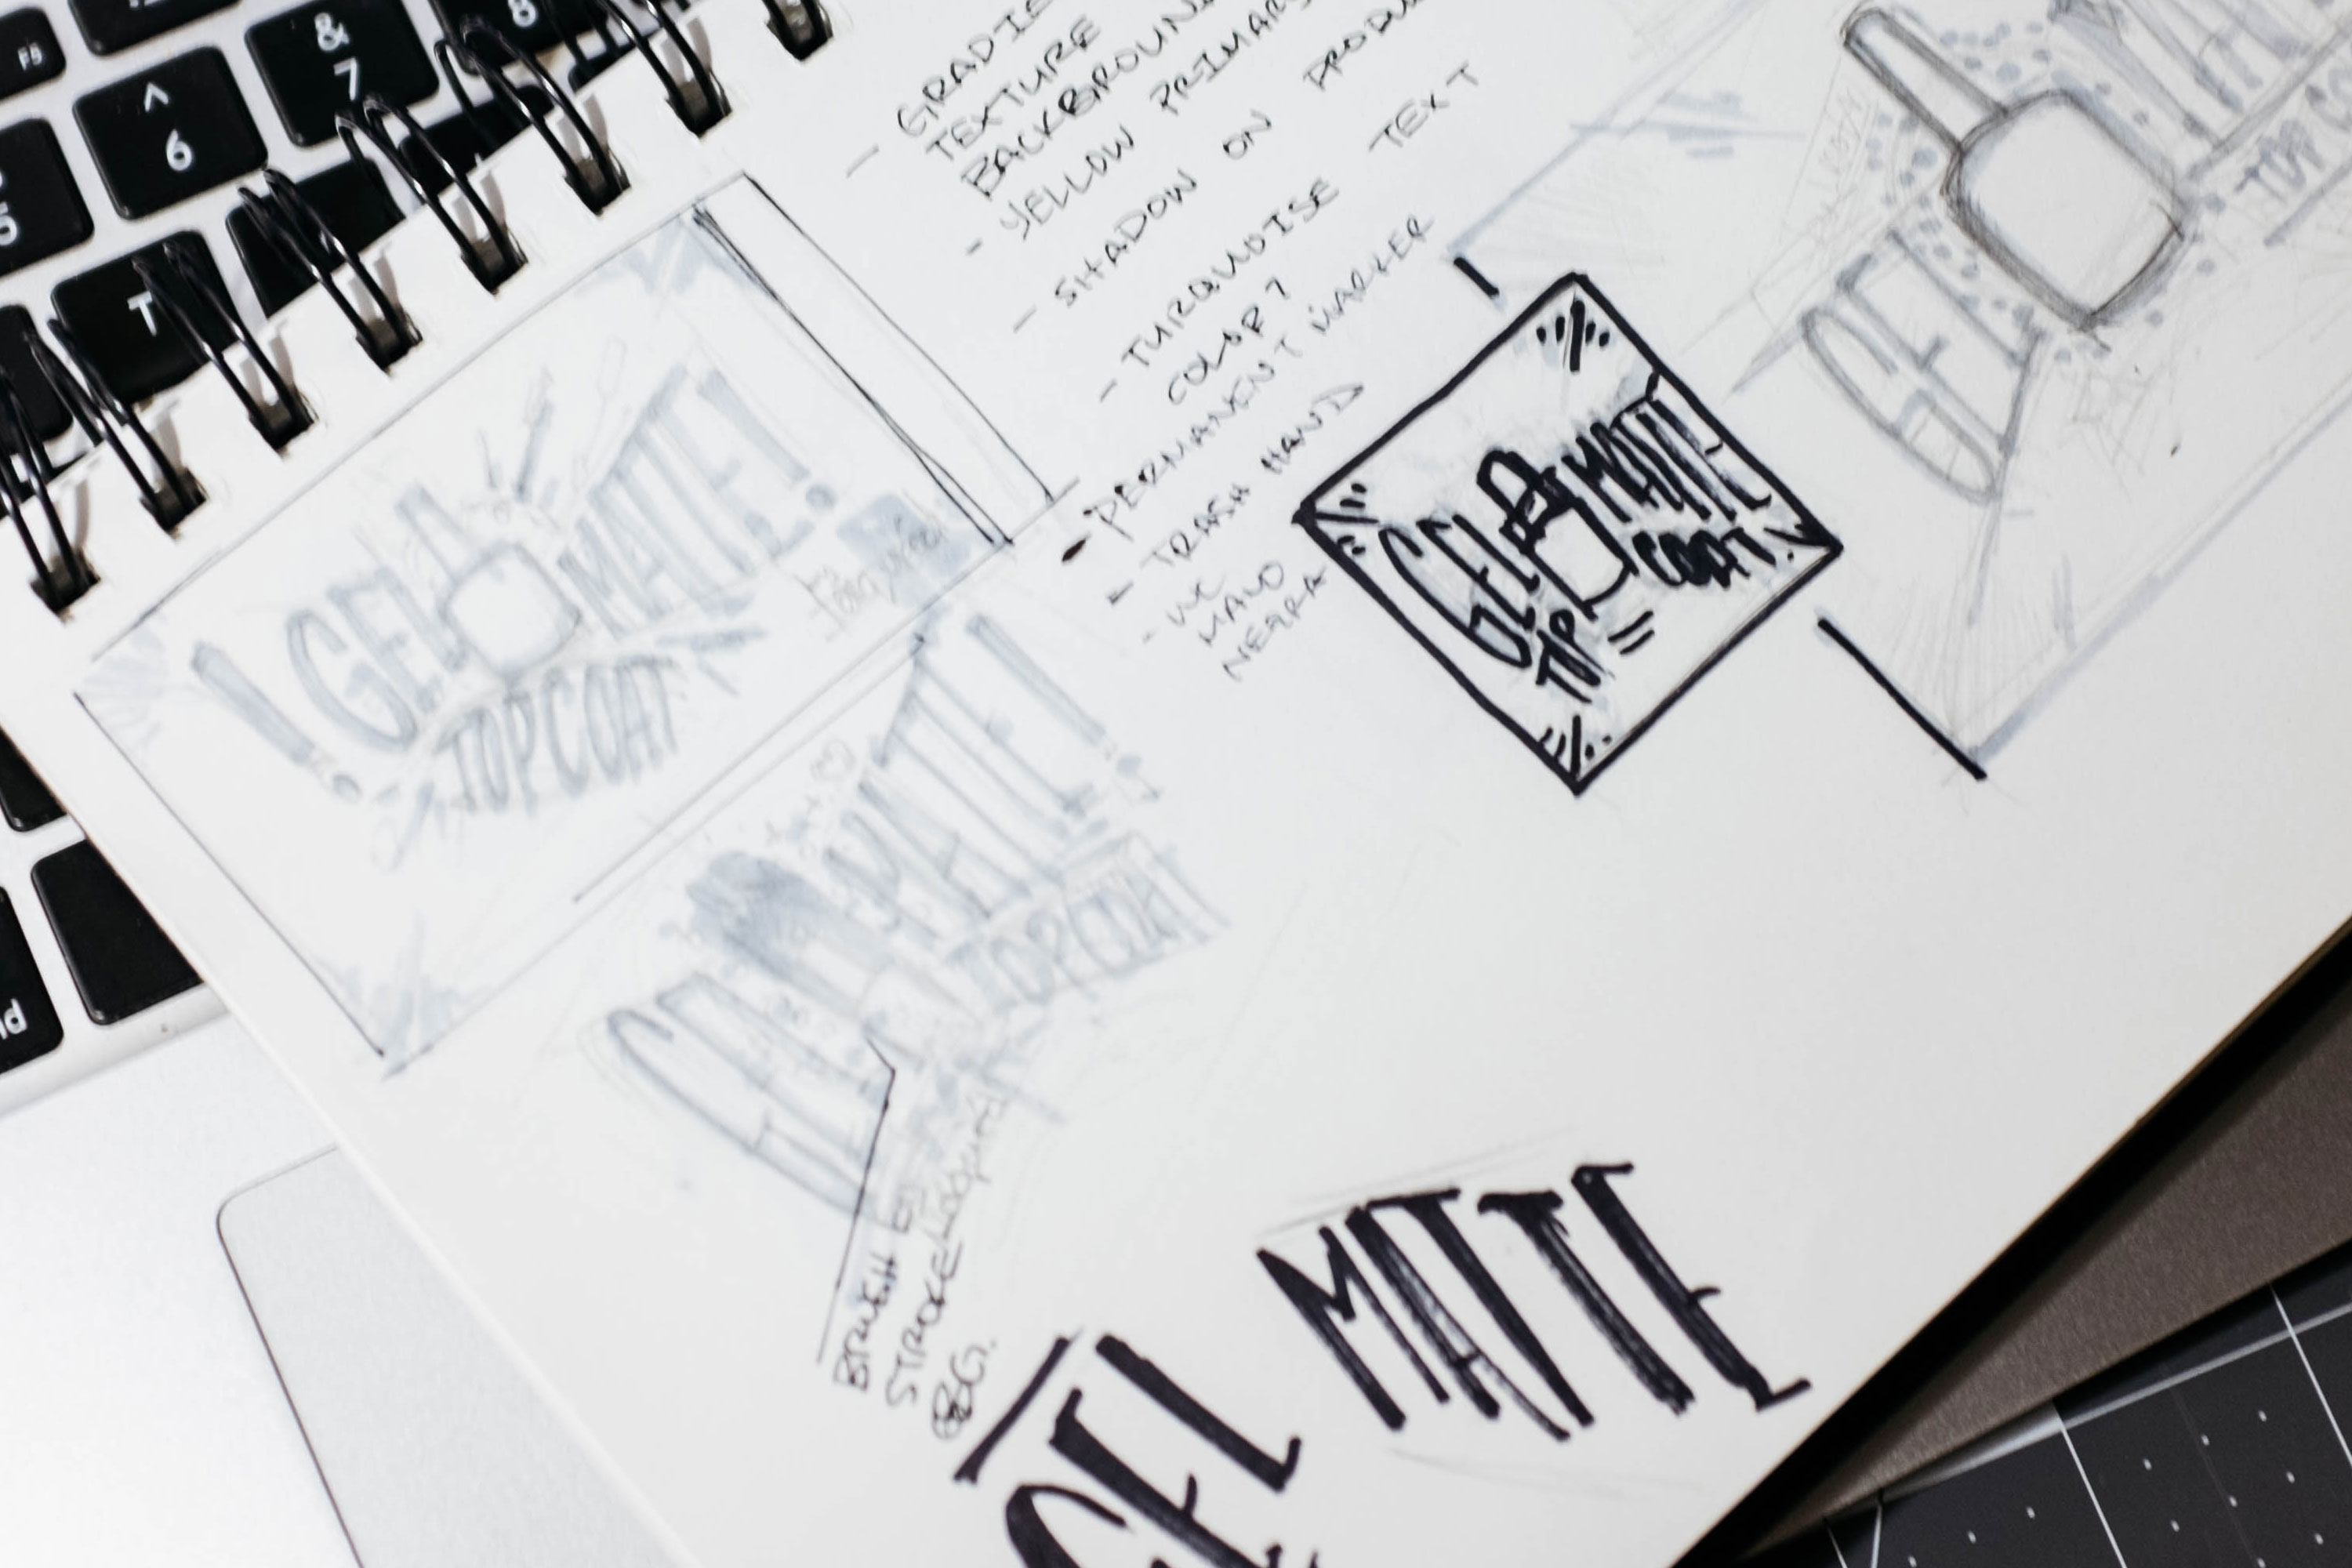 F5
^
6
&
7
8
5
T
GRADIE
TEXTURE
BACKGROUN
- YELLOW PRIMARY
- SHADOW ON PRODU
- TURQUOISE TEXT
COLOR?
- PERMANENT MARKER
- TRASH HAND
- WC
MANO
NEGRA
! GEL MATTE!
TOP COAT
GEL MATTE!
TOP COAT
BRUSH
STROKE
BG.
GEL MATTE
TOP COAT.
GEL
TOP CO
GEL MATTE
nd